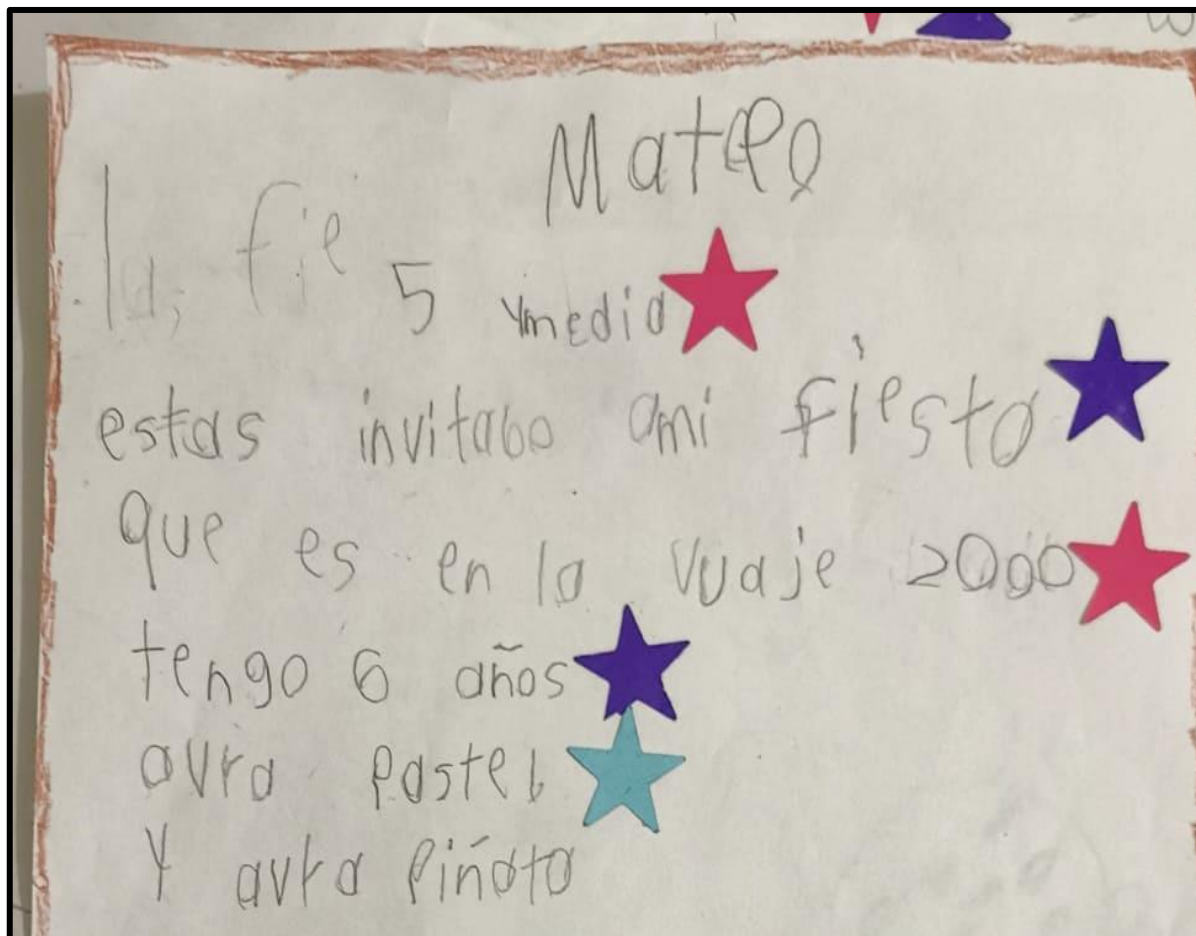 Mateo
la, fie
5 ymedia
estas invitabo ami fiesta
que es en la vuaje 2000
tengo 6 años
avra pastel
Y avra Piñata